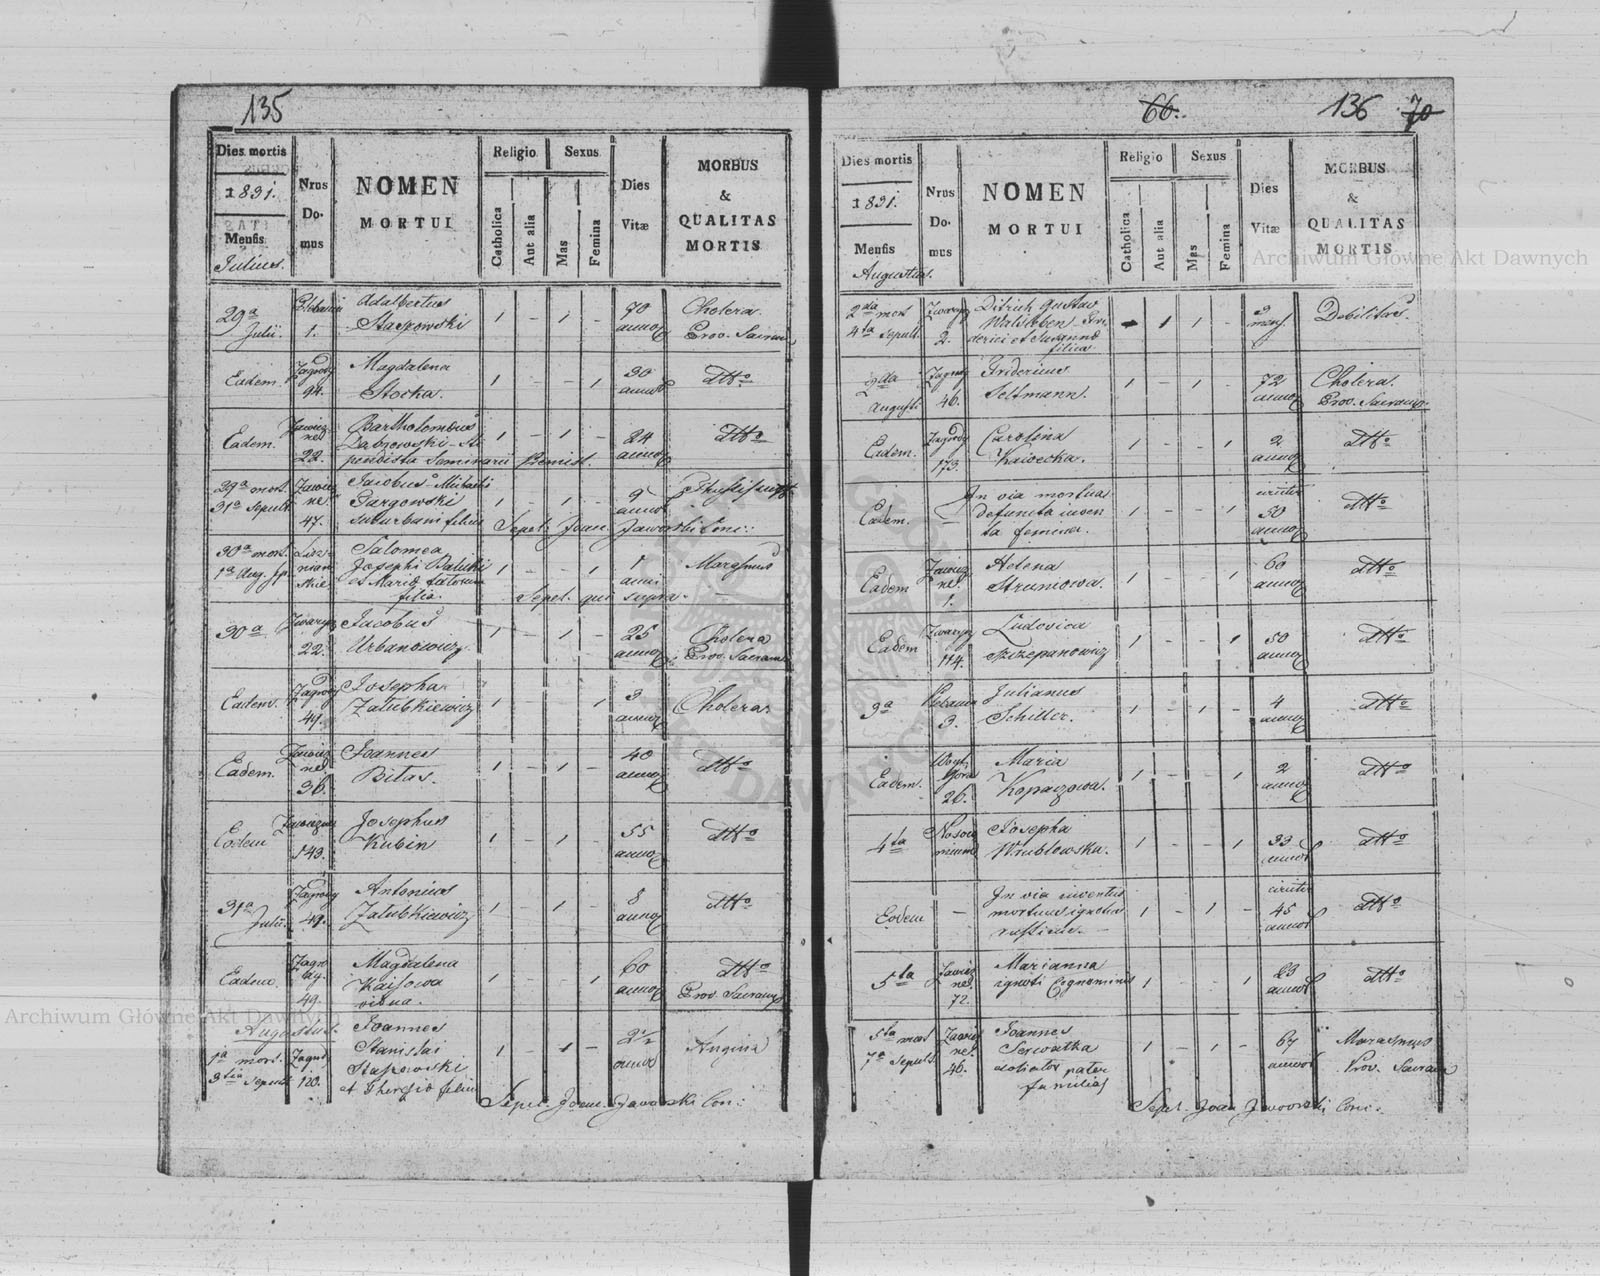 135
Dies mortis
1831.
Mensis
Julius.
Nrus
Do-
mus
NOMEN
MORTUI
Religio
Catholica
Aut alia
Sexus
Mas
Femina
Dies
Vitæ
MORBUS
&
QUALITAS
MORTIS
29a
Julii
1.
Adalbertus
Stajkowski
1 - 1 -
70
annoꝝ
Cholera
Prov. Sacram
Eadem.
Zagrody
94.
Magdalena
Stocka.
1 - - 1
30
annoꝝ
dtto
Eadem.
22.
Bartholomeus
Dąbrowski - Sti
pendista Seminarii Premisl.
1 - 1 -
24
annoꝝ
dtto
29a mort.
31a Sepult.
47.
Jacobus Michaelis
Gargowski
suburbani filius
1 - 1 -
9
annoꝝ
Sepel. Joan. Jaworski Conc:
30a mort.
1a Aug. sp.
Salomea
Josephi
et Mariæ
filia.
1 - - 1
1
anni
Marasmus
Sepel. qui supra.
30a
Zwaryn
22.
Jacobus
Urbanowicz.
1 - 1 -
25
annoꝝ
Cholera
Prov. Sacram
Eadem.
Zagrody
49.
Josepha
Załubkiewicz
1 - - 1
3
annoꝝ
Cholera.
Eadem.
36.
Joannes
Bilas.
1 - 1 -
40
annoꝝ
dtto
Eodem
143.
Josephus
Kubin
1 - 1 -
55
annoꝝ
dtto
31a
Julii.
Zagrody
49.
Antonius
Załubkiewicz
1 - 1 -
8
annoꝝ
dtto
Eadem.
Zagro
dy.
49.
Magdalena
vidua.
1 - - 1
60
annoꝝ
dtto
Prov. Sacram
Augustus.
1a mort.
3tia Sepult
Zagrod
120.
Joannes
Stanislai
Stajkowski
filius
1 - 1 -
2½
annos
Angina
Sepel. Joan. Jaworski Conc:
66.
136
70
Dies mortis
1831.
Mensis
Augustus.
Nrus
Do-
mus
NOMEN
MORTUI
Religio
Catholica
Aut alia
Sexus
Mas
Femina
Dies
Vitæ
MORBUS
&
QUALITAS
MORTIS
2da mort
4ta Sepult.
Zwaryn
2.
Ditrich Gustav
Walsleben - Fri
derici et Susannæ
filius.
- 1 1 -
3
mens.
Debilitas.
2da
Augusti
46.
Fridericus
Seltmann.
1 - 1 -
72
annoꝝ
Cholera.
Prov. Sacram.
Eadem.
Zagrody
173.
Carolina
Kawecka.
1 - - 1
2
annoꝝ
dtto
Eadem.
-
In via mortua
defuncta inven
ta femina.
1 - - 1
circiter
50
annoꝝ
dtto
Eadem
1.
Helena
Strumowa.
1 - - 1
60
annoꝝ
dtto
Eadem
Zwaryn
114.
Ludovica
Szczepanowicz
1 - - 1
50
annoꝝ
dtto
3a
3.
Julianus
Schiller.
1 - 1 -
4
annoꝝ
dtto
Eadem.
Góra
26.
Maria
Kopaczowa.
1 - - 1
2
annoꝝ
dtto
4ta
Josepha
Wrublowska.
1 - - 1
33
annos
dtto
Eodem
-
In via inventus
mortuus ignotus
rusticus.
1 - 1 -
circiter
45
annos
dtto
5ta
72.
Marianna
ignoti Cognominis
1 - - 1
23
annos
dtto
5ta mort
7a Sepult.
46.
Joannes
Serwatka
pater
familias
1 - 1 -
67
annos
Marasmus
Prov. Sacram
Sepel. Joan Jaworski Conc:
Archiwum Główne Akt Dawnych
Archiwum Główne Akt Dawnych